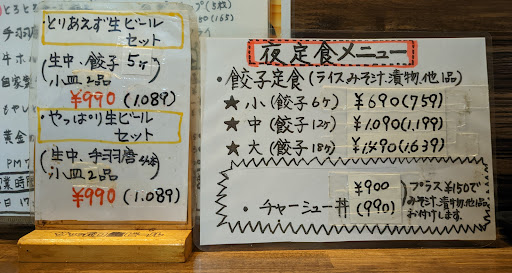 ・とりあえず生ビール
セット
生中、餃子5ヶ
小皿2品
¥990(1.089)
・やっぱり生ビール
セット
生中、手羽唐
小皿2品
¥990(1.089)
夜定食メニュー
・餃子定食(ライスみそ汁、漬物、他1品)
★小(餃子6ヶ) ¥690(759)
★中(餃子12ヶ) ¥1.090(1.199)
★大(餃子18ヶ) ¥1.490(1.639)
・チャーシュー丼 ¥900(990)
プラス¥150で
みそ汁、漬物、他1品
お付けします。
手羽
牛ホル
自家製
もやし
黄金
PM7
営業時